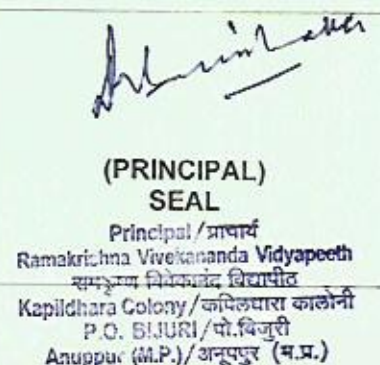 (PRINCIPAL)
SEAL
Principal/प्राचार्य
Ramakrishna Vivekananda Vidyapeeth
रामकृष्ण विवेकानंद विद्यापीठ
Kapildhara Colony/कपिलधारा कालोनी
P.O. BIJURI/पो.बिजुरी
Anuppur (M.P.)/अनूपपुर (म.प्र.)